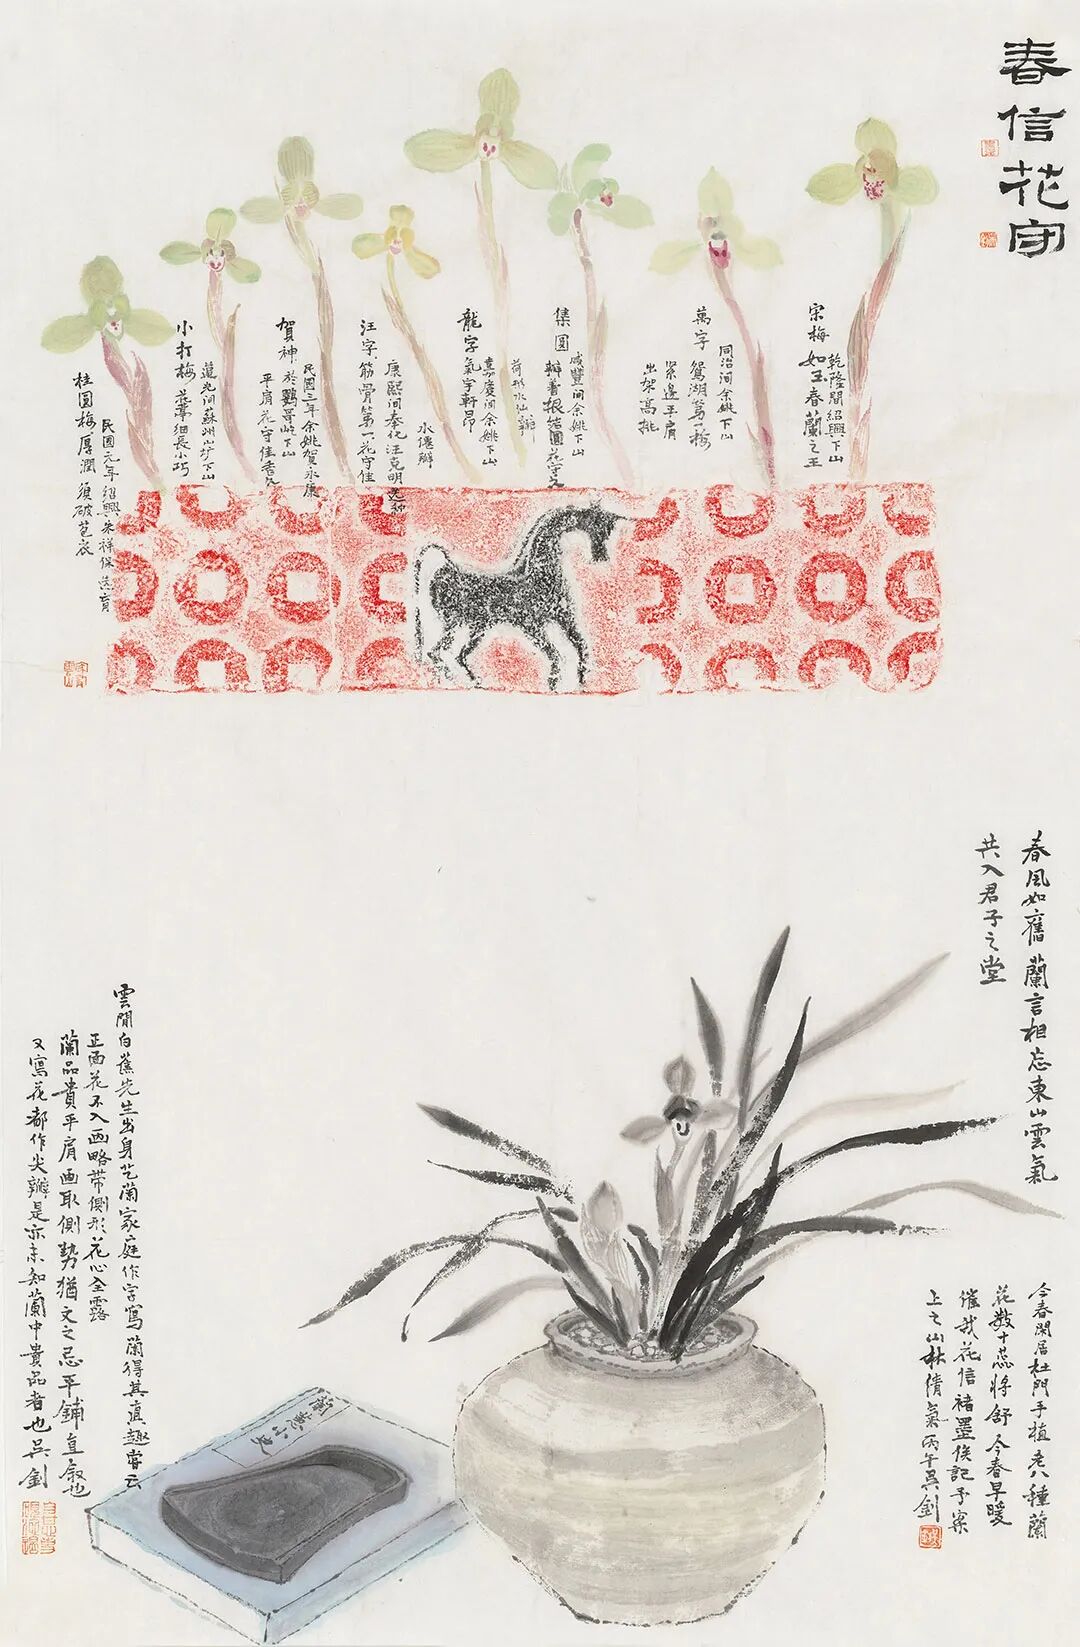 春信花守
宋梅
乾隆間紹興下山
如玉春蘭之王
萬字
同治间余姚下山
鴛湖第一梅
紧邊平肩
出架高挑
集圓
咸豐间余姚下山
辦着根结圓花守
龍字
嘉慶间余姚下山
荷形水仙瓣
氣宇軒昂
汪字
康熙河奉化汪克明选种
筋骨第一花守佳
水僊瓣
賀神
民國三年余姚賀永康
於鸚哥山下山
平肩花守佳
小打梅
道光间蘇州山圹下山
花葶细長小巧
桂圓梅
民國元年紹興朱祥保选育
厚潤
須破苞衣
春風如舊蘭言相忘東山雲氣
共入君子之堂
今春閑居杜門手植老八種蘭
花數十蕊將舒今春早暖
催我花信褚墨俟記于案
上之山林清氣丙午吴劍
雲間白蕉先生出身艺蘭家庭作字寫蘭得其真趣嘗云
正面花不入画略带側形花心全露
蘭品貴平肩画取側勢猶文之忌平鋪直叙也
又寫花都作尖瓣是亦未知蘭中貴品者也吴劍
蘭蕙小史